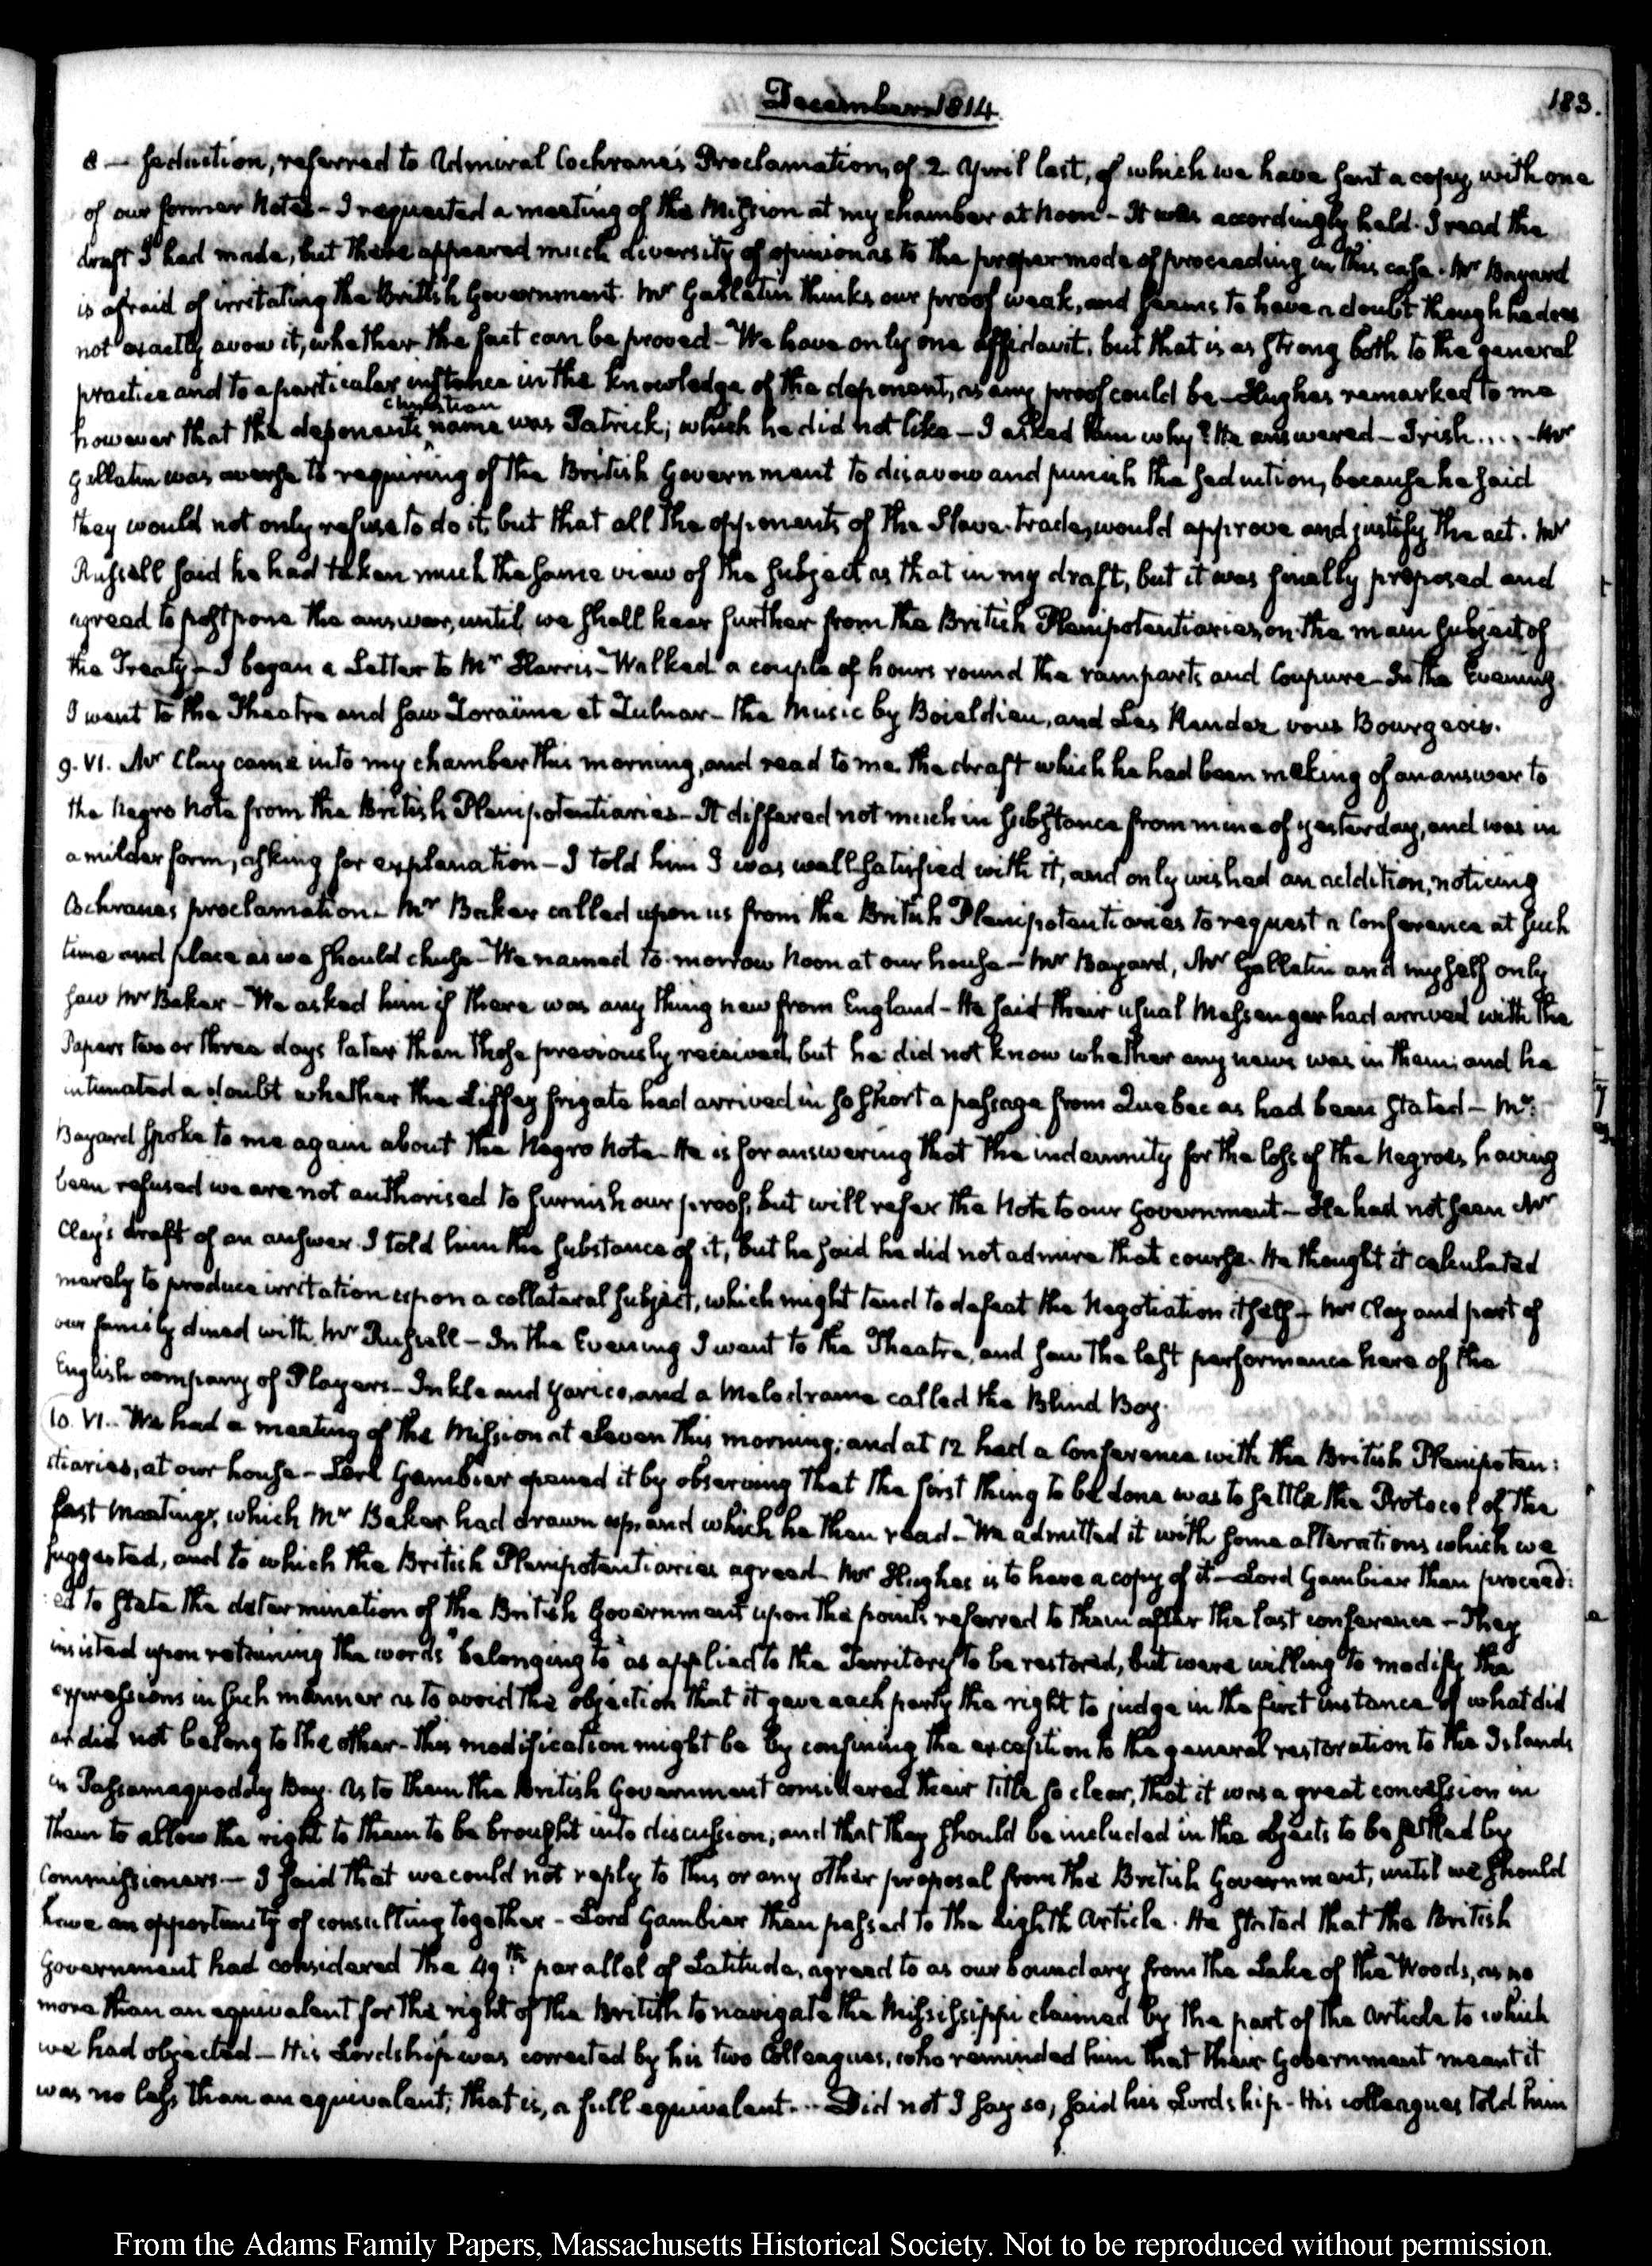 December 1814.
183.
8 — seduction, referred to Admiral Cochrane's Proclamation, of 2. April last, of which we have sent a copy, with one
of our former Notes - I requested a meeting of the Mission at my chamber at Noon - It was accordingly held. I read the
draft I had made, but there appeared much diversity of opinion as to the proper mode of proceeding in this case. Mr Bayard
is afraid of irritating the British Government. Mr Gallatin thinks our proof weak, and seems to have a doubt though he does
not exactly avow it, whether the fact can be proved - We have only one affidavit, but that is as strong both to the general
practice and to a particular instance in the knowledge of the deponent, as any proof could be - Hughes remarked to me
however that the deponent's Christian name was Patrick; which he did not like - I asked him why? He answered - Irish..... Mr
Gallatin was averse to requiring of the British Government to disavow and punish the seduction, because he said
they would not only refuse to do it, but that all the opponents of the Slave-trade, would approve and justify the act. Mr
Russell said he had taken much the same view of the subject as that in my draft, but it was finally proposed and
agreed to postpone the answer, until we shall hear further from the British Plenipotentiaries, on the main subject of
the Treaty - I began a Letter to Mr Harris - Walked a couple of hours round the ramparts and Coupure - In the Evening
I went to the Theatre and saw Zoraïme et Zulnar - the Music by Boieldieu, and Les Rendez vous Bourgeois.
9. VI. Mr Clay came into my chamber this morning, and read to me the draft which he had been making of an answer to
the Negro Note from the British Plenipotentiaries - It differed not much in substance from mine of yesterday, and was in
a milder form, asking for explanation - I told him I was well satisfied with it, and only wished an addition, noticing
Cochrane's proclamation - Mr Baker called upon us from the British Plenipotentiaries to request a Conference at such
time and place as we should chuse - We named to-morrow Noon at our house - Mr Bayard, Mr Gallatin and myself only
saw Mr Baker - We asked him if there was any thing new from England - He said their usual Messenger had arrived with the
Papers two or three days later than those previously received, but he did not know whether any news was in them; and he
intimated a doubt whether the Liffey frigate had arrived in so short a passage from Quebec as had been stated - Mr.
Bayard spoke to me again about the Negro Note - He is for answering that the indemnity for the loss of the Negroes having
been refused we are not authorised to furnish our proof, but will refer the Note to our Government - He had not seen Mr
Clay's draft of an answer. I told him the substance of it, but he said he did not admire that course. He thought it calculated
merely to produce irritation upon a collateral subject, which might tend to defeat the Negotiation itself - Mr Clay and part of
our family dined with Mr Russell - In the Evening I went to the Theatre, and saw the last performance here of the
English company of Players - Inkle and Yarico, and a Melodrame called the Blind Boy.
10. VI. We had a meeting of the Mission at eleven this morning; and at 12 had a Conference with the British Plenipoten:
tiaries, at our house - Lord Gambier opened it by observing that the first thing to be done was to settle the Protocol of the
last Meetings, which Mr Baker had drawn up, and which he then read - We admitted it with some alterations which we
suggested, and to which the British Plenipotentiaries agreed - Mr Hughes is to have a copy of it - Lord Gambier then proceed:
ed to state the determination of the British Government upon the points referred to them after the last conference - They
insisted upon retaining the words "belonging to" as applied to the Territory to be restored, but were willing to modify the
expressions in such manner as to avoid the objection that it gave each party the right to judge in the first instance of what did
or did not belong to the other - This modification might be by confining the exception to the general restoration to the Islands
in Passamaquoddy Bay. As to them the British Government considered their title so clear, that it was a great concession in
them to allow the right to them to be brought into discussion, and that they should be included in the objects to be settled by
Commissioners - I said that we could not reply to this or any other proposal from the British Government, until we should
have an opportunity of consulting together - Lord Gambier then passed to the Eighth Article. He stated that the British
Government had considered the 49.th parallel of Latitude, agreed to as our boundary from the Lake of the Woods, as no
more than an equivalent for the right of the British to navigate the Mississippi claimed by the part of the Article to which
we had objected - His Lordship was corrected by his two Colleagues, who reminded him that their Government meant it
was no less than an equivalent; that is, a full equivalent... Did not I say so, said his Lordship - His colleagues told him
From the Adams Family Papers, Massachusetts Historical Society. Not to be reproduced without permission.